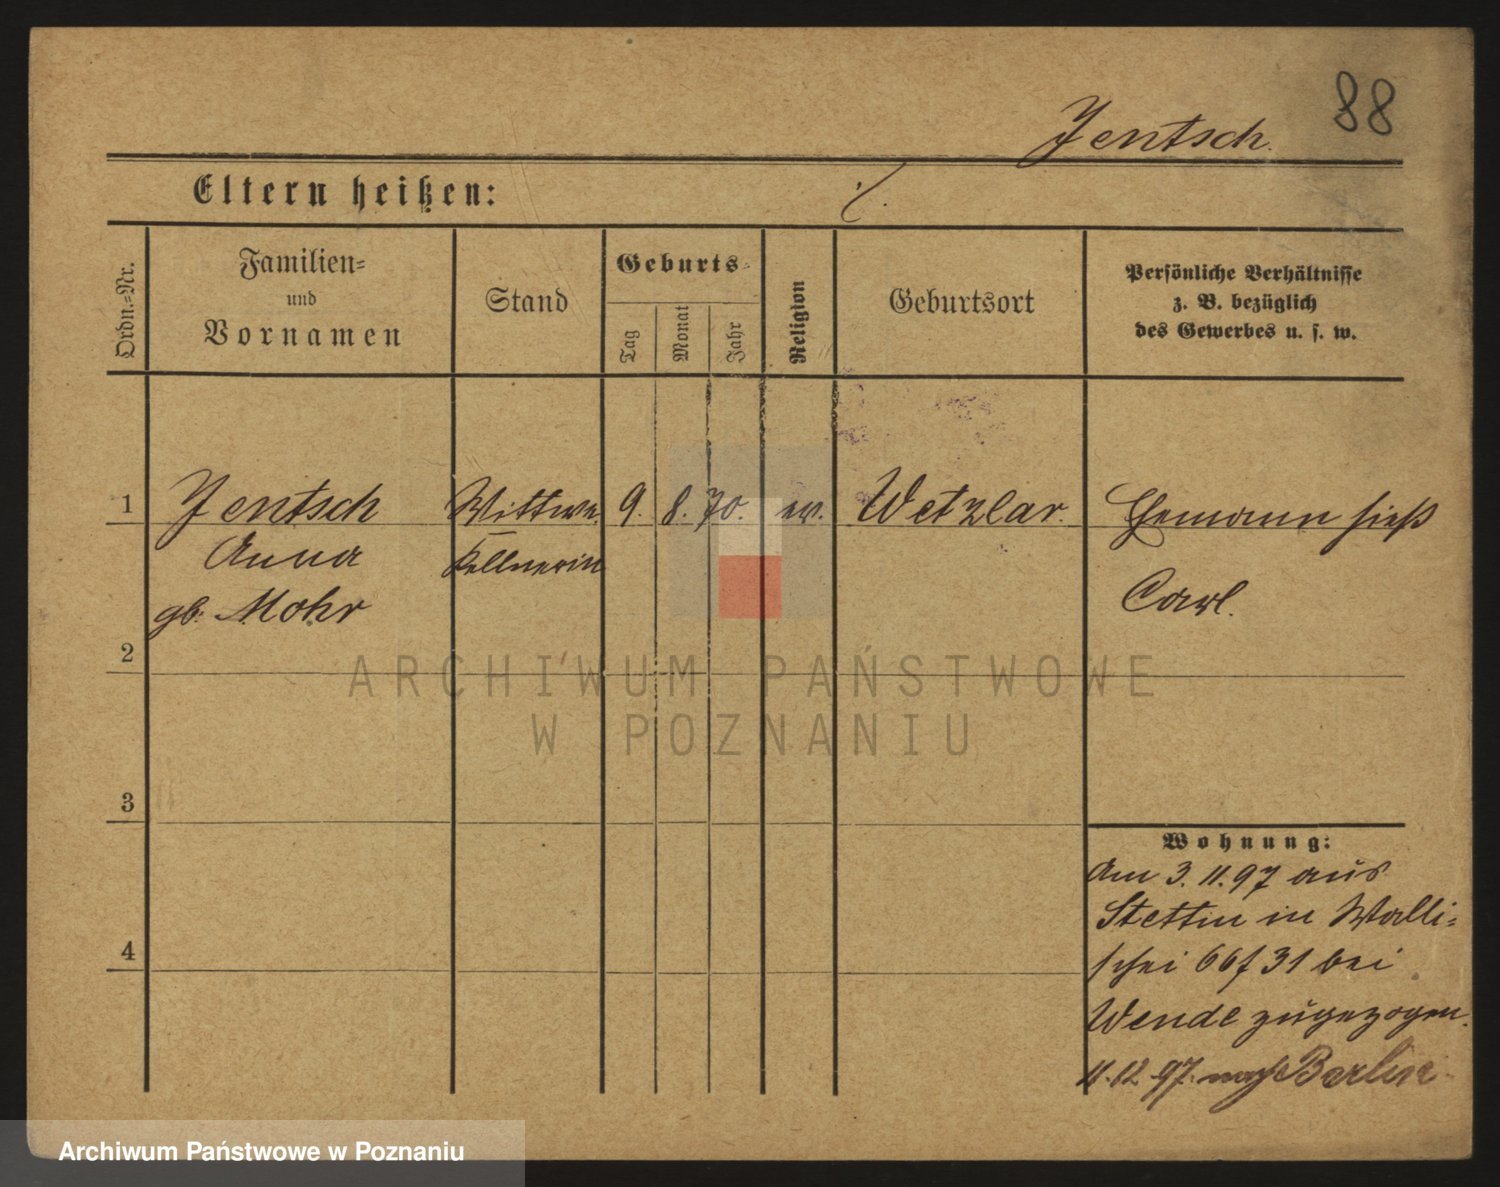 88
Jentsch.
Eltern heißen: ./.
Ordn.=Nr.
Familien=
und
Vornamen
Stand
Geburts=
Tag
Monat
Jahr
Religion
Geburtsort
Persönliche Verhältnisse
z. B. bezüglich
des Gewerbes u. s. w.
1 Jentsch Wittwe. 9. 8. 70. ev. Wetzlar. Ehemann hieß
Anna Kellnerin
gb. Mohr Carl.
2
ARCHIWUM PAŃSTWOWE
W POZNANIU
3
Wohnung:
Am 3. 11. 97 aus
Stettin in Walli=
4
schei 66 f 31 bei
Wende zugezogen.
11.12.97. nach Berlin.
Archiwum Państwowe w Poznaniu